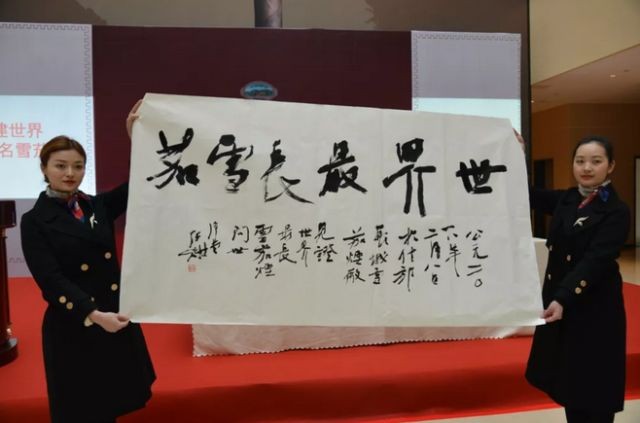 建世界
名雪茄
世界最長雪茄
公元二〇
一八年
二月八日
於什邡
長城雪
茄煙廠
見證
世界
最長
雪茄煙
問世